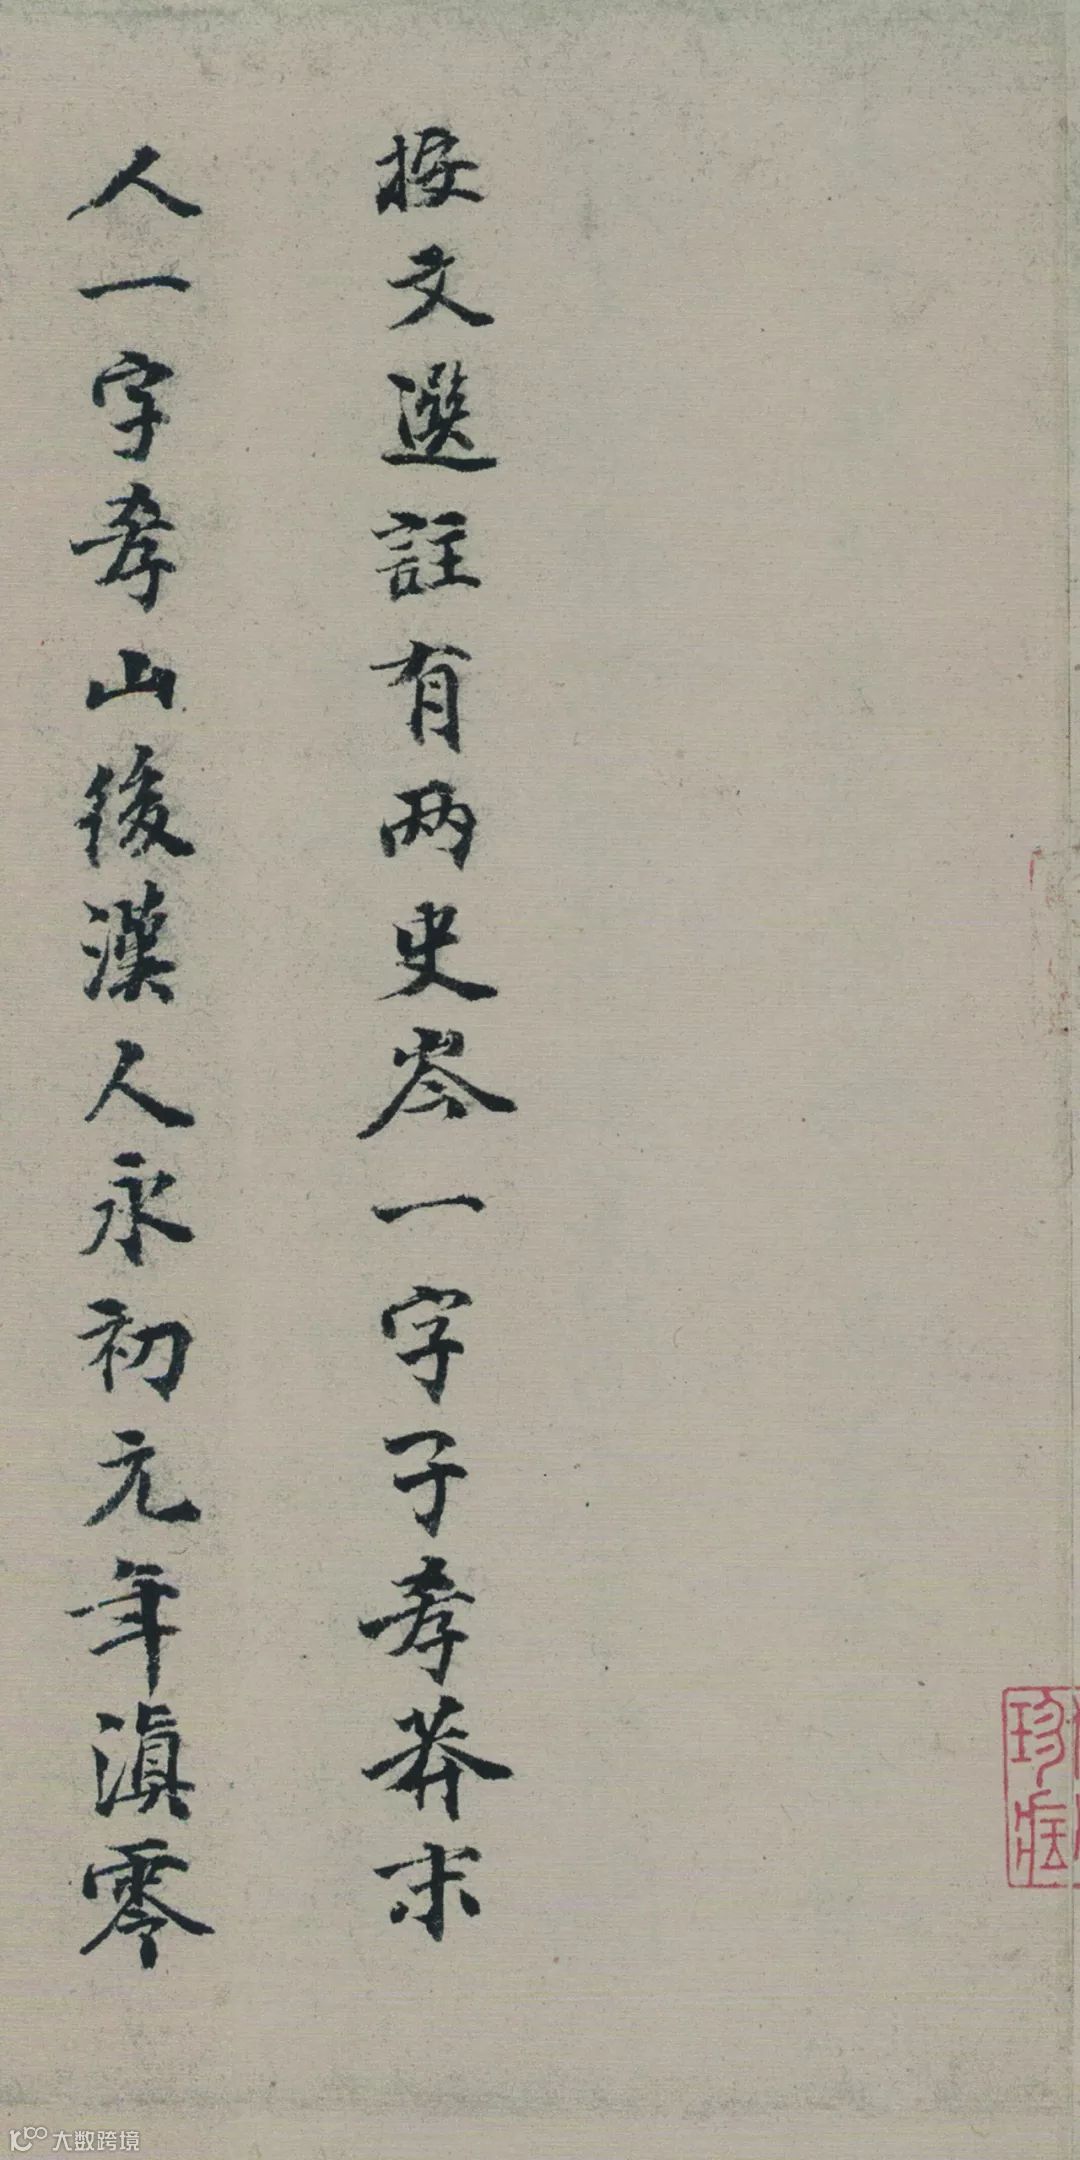 按文選註有两史岑一字子孝莽末
人一字孝山後漢人永初元年滇零
珍
大数跨境